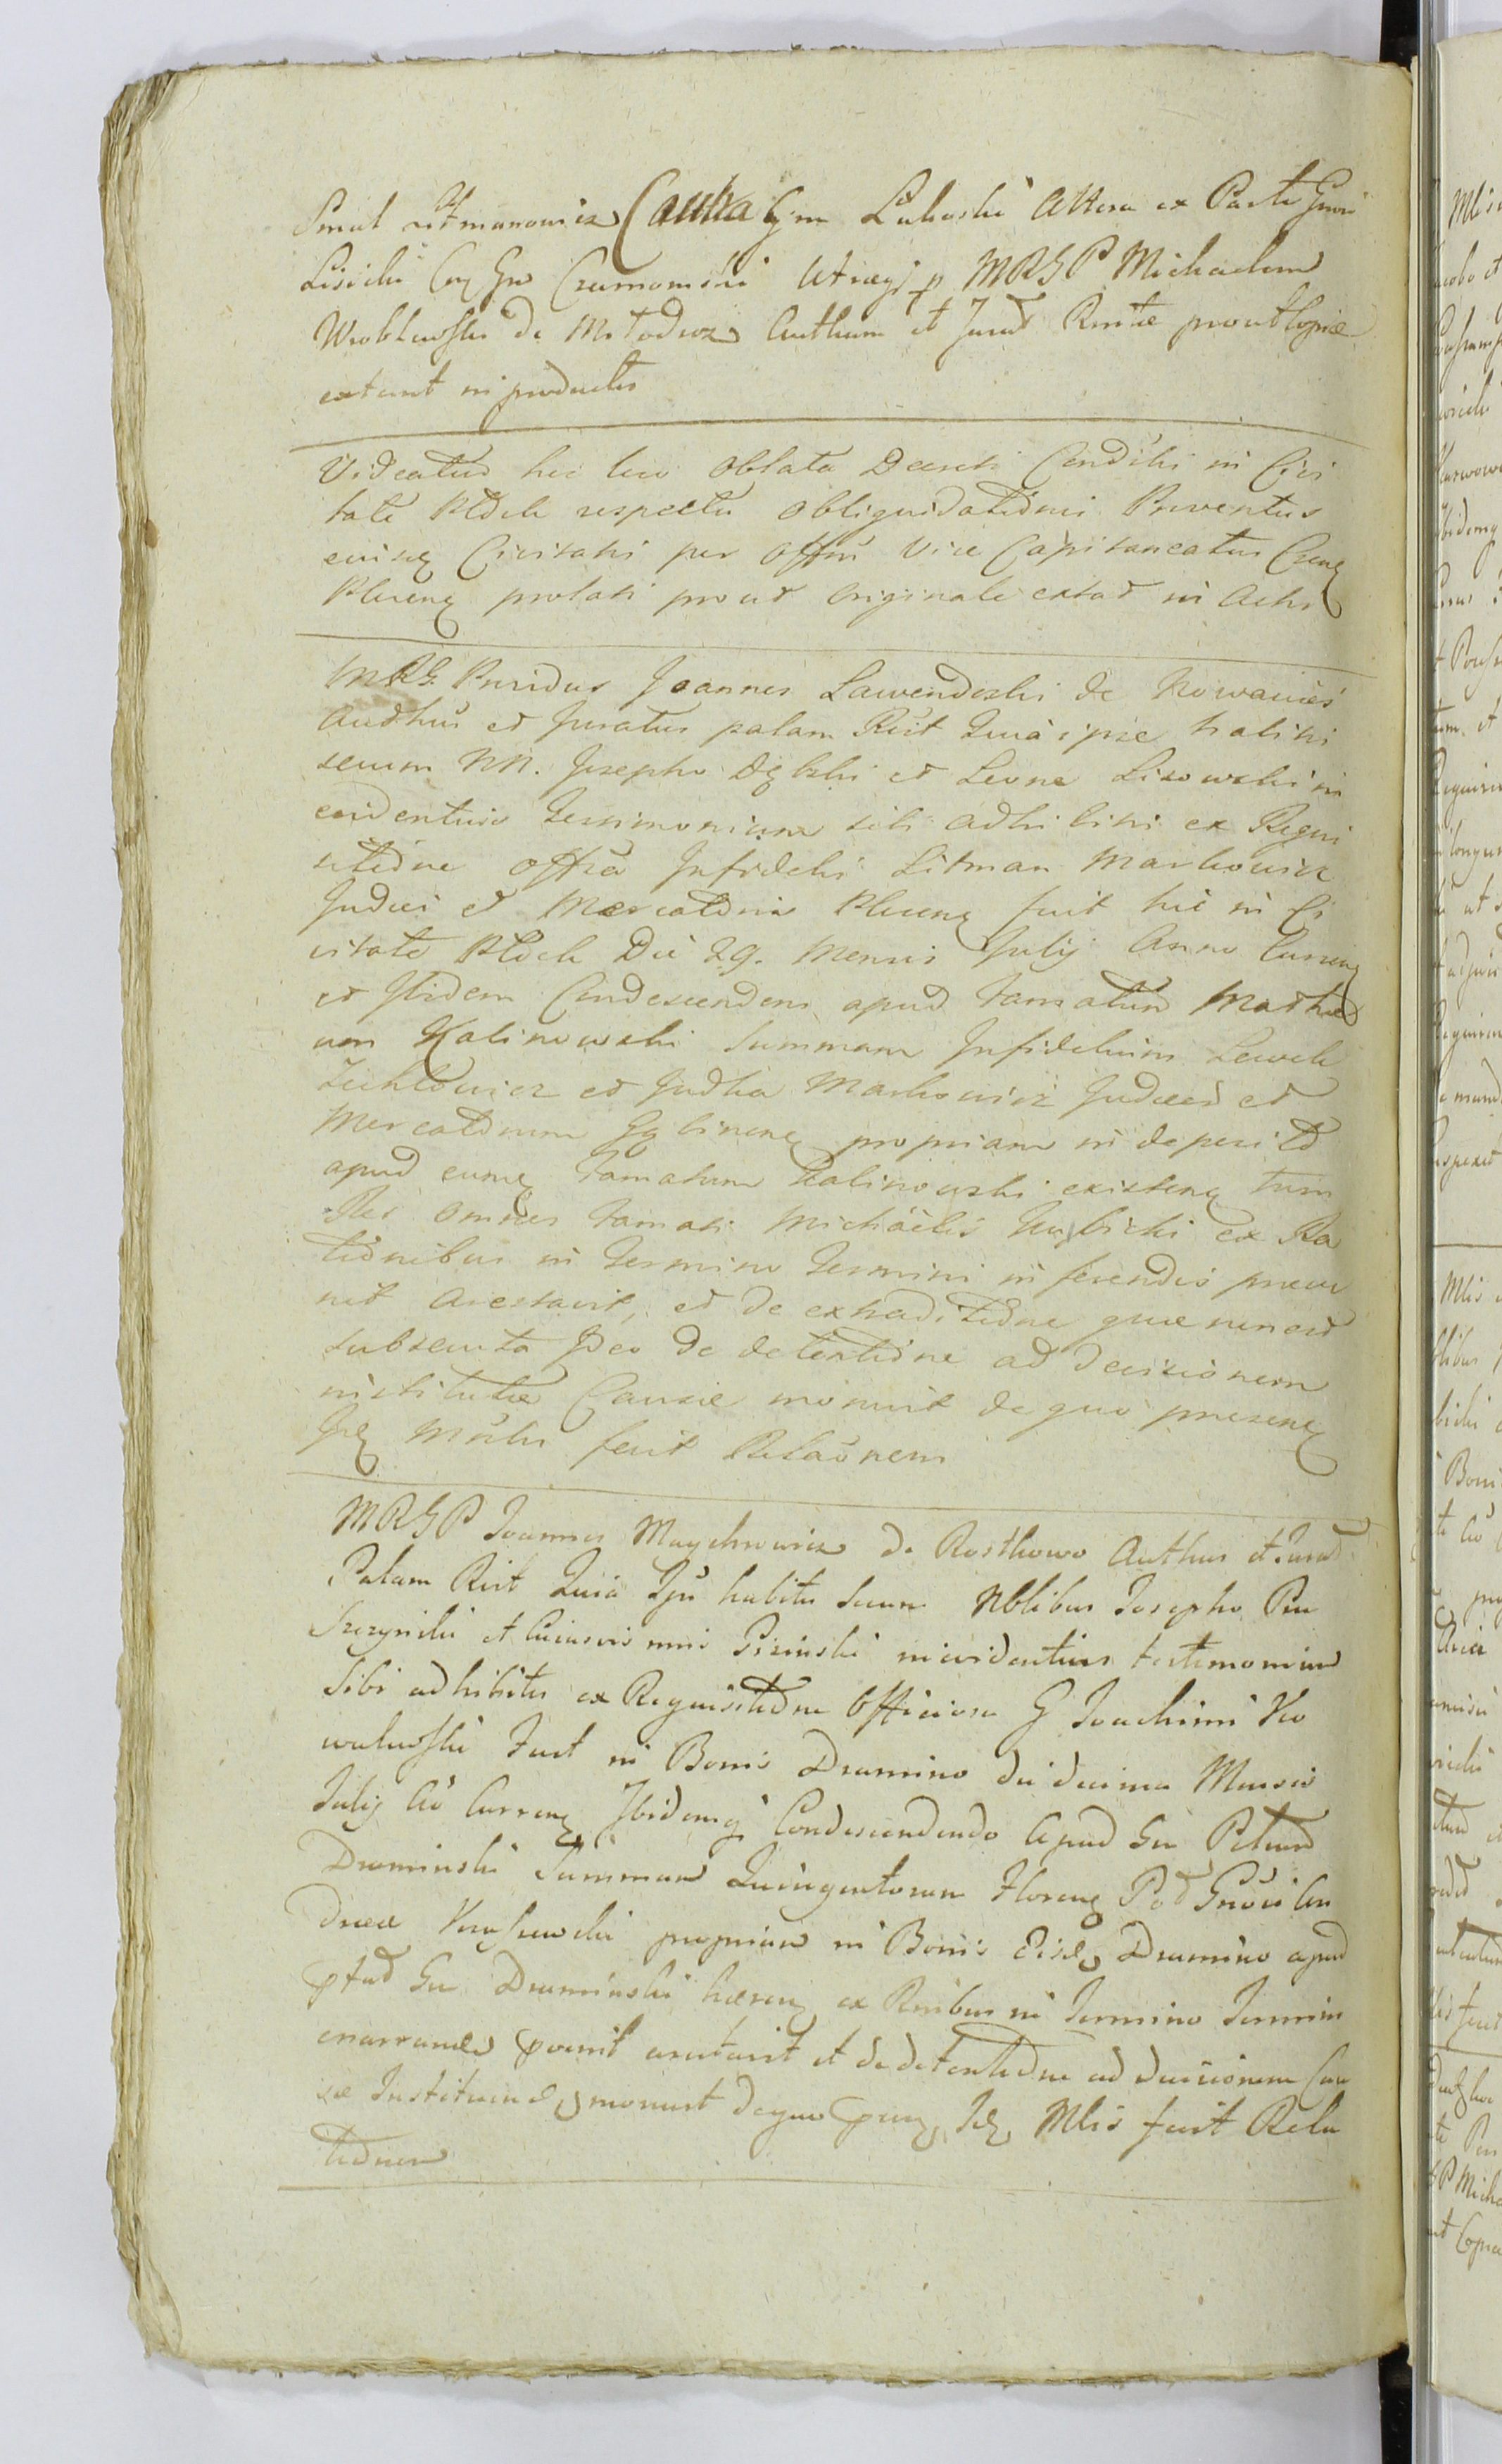 Smul Litmanowicz Contra Gm Lukoski Altera ex Parte Gnosi
Lisicki Cum Gm Czarnomski utrasq p MRGP Michaelem
Wroblewski de Mstodroz Authum et Jurat Rntæ prout Copiæ
extant in productis
Videatur hic loco Oblata Decreti Condicti in Civi
tate Plock respectu obliquidationis Proventus
eiusq Civitatis per Offm Vice Capitaneatus Cren
Plocen prolati prout originale extat in Actis
MRG. Pnridus Joannes Lawendoski de Nowawies
Authus et Juratus palam Rcit Quia ipse habitis
secum NN. Josepho Dębski et Leone Lisowski in
evidentius Testimonium sibi adhibitis ex Requi
sitione Offsa Infidelis Litman Markowicz
Judæi et Mercatoris Plocen fuit hic in Ci
vitate Plock Die 29. Mensis Julij Anno Curren
et Ibidem Condescendens apud Famatum Mathæ
um Kalinowski Summam Infidelium Lewek
et Judka Markowicz Judæor et
Mercatorum Gąbinen propriam in deposito
apud eumq Famatum Kalinowski existen tum
Res omnes Famati Michäelis ex Ra
tionibus in Termino Termini inferendis præve
nit Arestavit, et de extraditione quæ non est
subsecuta Ideo de detentione ad Decisionem
institutæ Causæ monuit de quo præsens
Idem Mrlis fecit Relaönem
MRGP Joannes Maychrowicz de Rostkowo Authus et Jurat
Palam Rcit Quia Ipse habitis secum Nblibus Josepho Pia
szczynski et Cuiusvis nnis Pisinski in evidentius testimonium
Sibi adhibitis ex Requisitione Officiosa G Joachimi Ko
walewski Fuit in Bonis Dramino die decima Mensis
Julij Ao Curren Ibidemq Condescendendo Apud Gm Petrum
Draminski Summam Quingentorum Floren Pol Gnosi An
dreæ propriam in Bonis eisd Dramino apud
pfat Gm Draminski hæren ex Rnibus in Termino Termini
enarrand pvenit arestavit et de detentione ad decisionem Cau
sæ Instituend monuit de quo pns Id Mlis fecit Rela
tionem